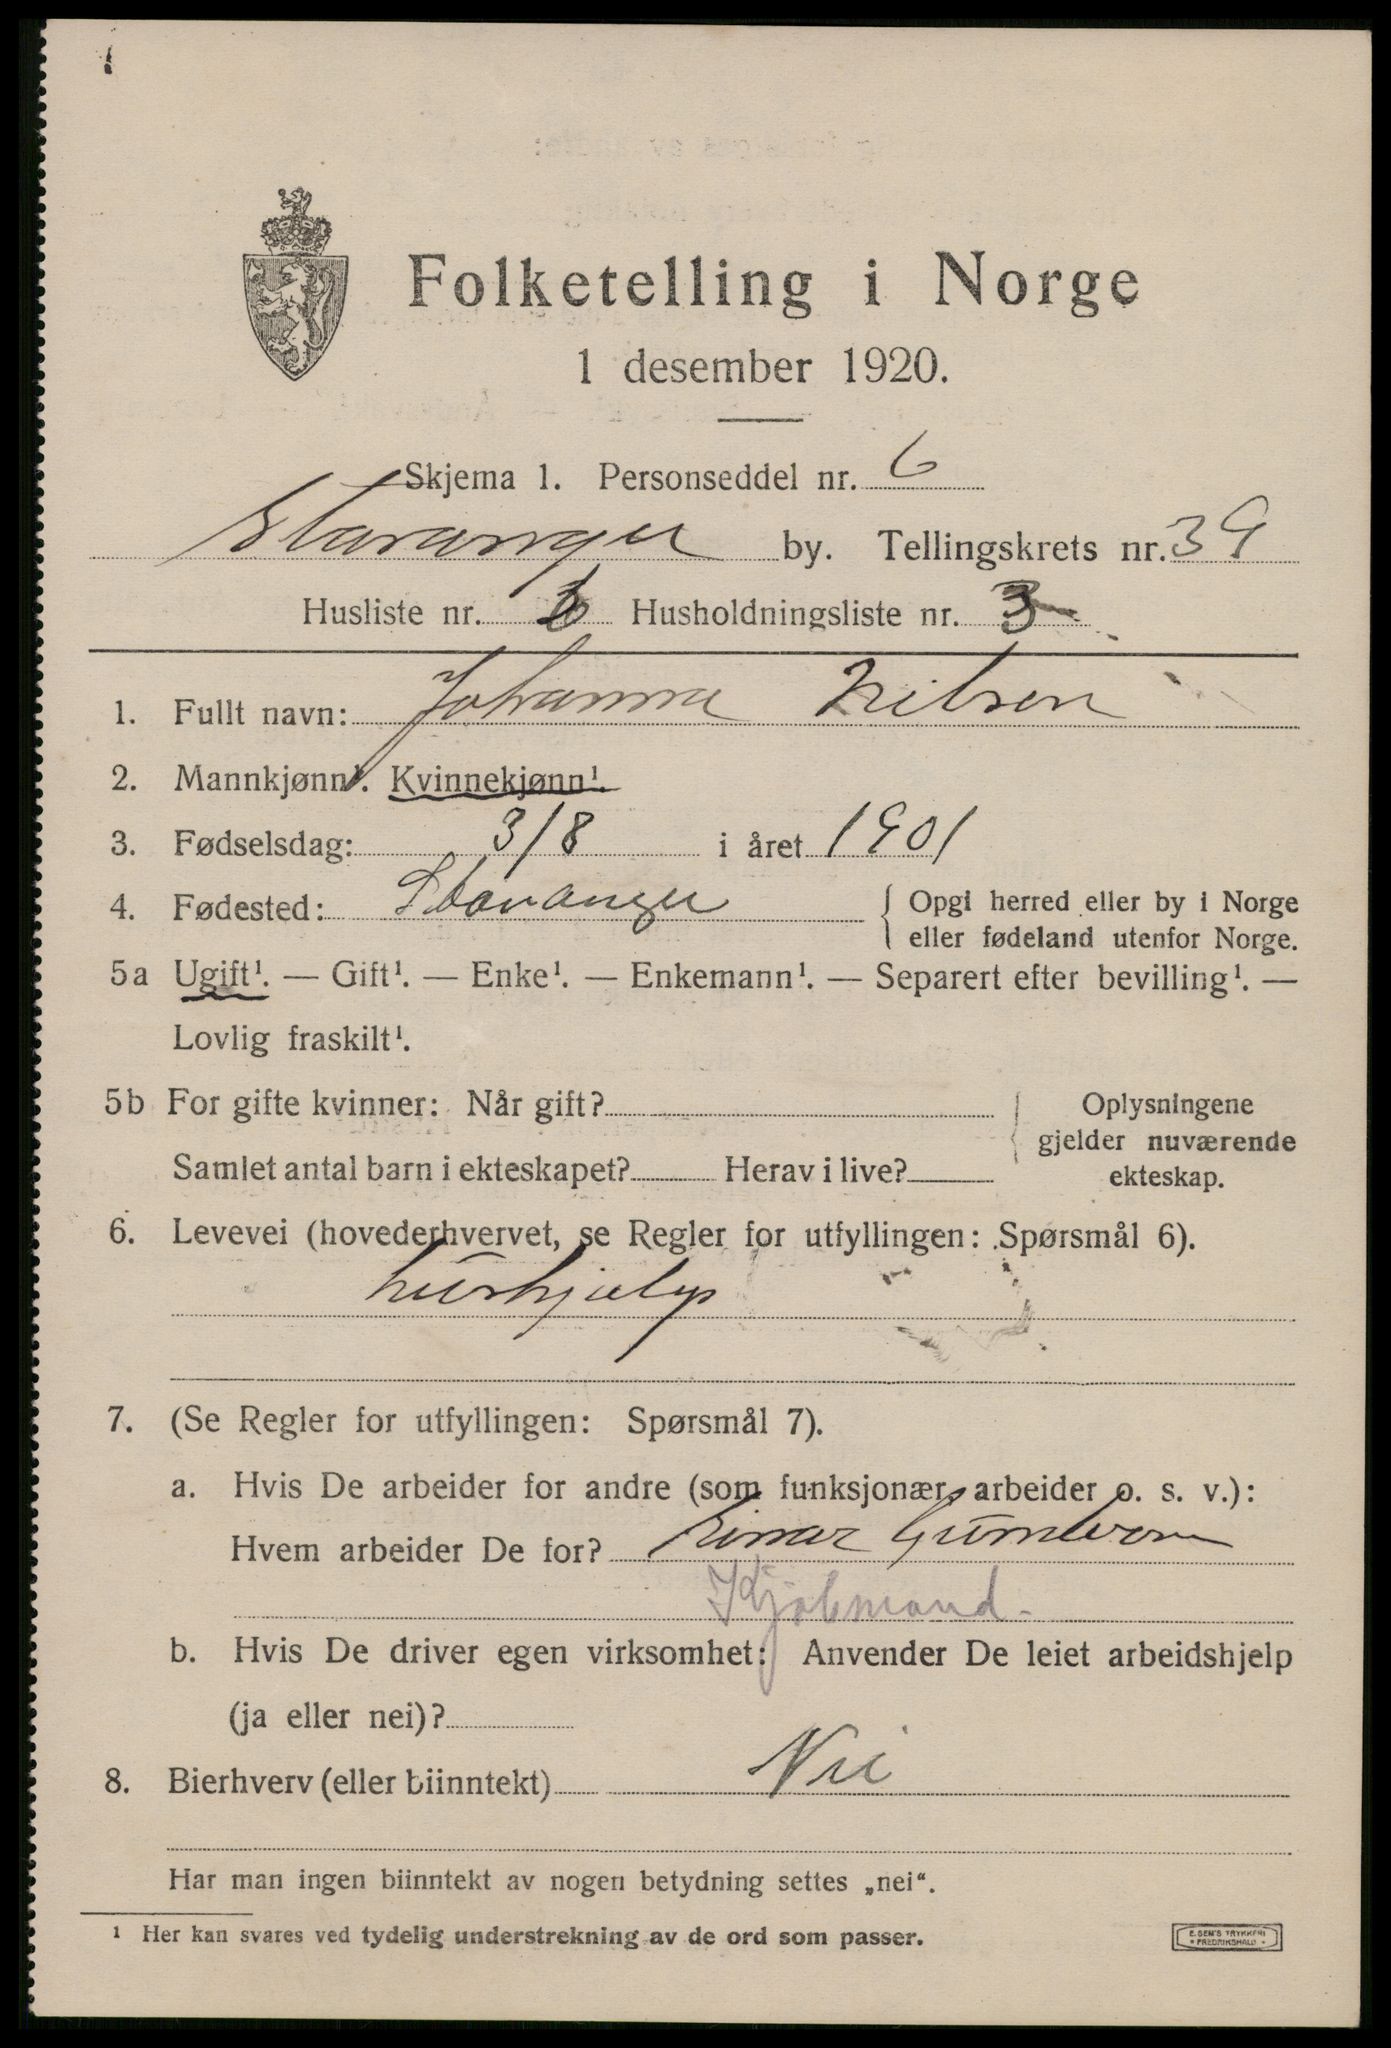 Folketelling i Norge
1 desember 1920.
Skjema 1. Personseddel nr. 6
Stavanger by. Tellingskrets nr. 39
Husliste nr. Husholdningsliste nr. 3
1. Fullt navn: Johanna Nilsen
2. Mannkjønn¹. Kvinnekjønn¹.
3. Fødselsdag: 3/8 i året 1901
4. Fødested: Stavanger { Opgi herred eller by i Norge
eller fødeland utenfor Norge.
5a Ugift¹. — Gift¹. — Enke¹. — Enkemann¹. — Separert efter bevilling¹. —
Lovlig fraskilt¹.
5b For gifte kvinner: Når gift? { Oplysningene
gjelder nuværende
Samlet antal barn i ekteskapet? Herav i live? ekteskap.
6. Levevei (hovederhvervet, se Regler for utfyllingen: Spørsmål 6).
hushjelp
7. (Se Regler for utfyllingen: Spørsmål 7).
a. Hvis De arbeider for andre (som funksjonær, arbeider o. s. v.):
Hvem arbeider De for? Einar
Kjøbmand.
b. Hvis De driver egen virksomhet: Anvender De leiet arbeidshjelp
(ja eller nei)?
8. Bierhverv (eller biinntekt) Nei
Har man ingen biinntekt av nogen betydning settes „nei“.
¹ Her kan svares ved tydelig understrekning av de ord som passer.
E. SEM'S TRYKKERI
* FREDRIKSHALD *